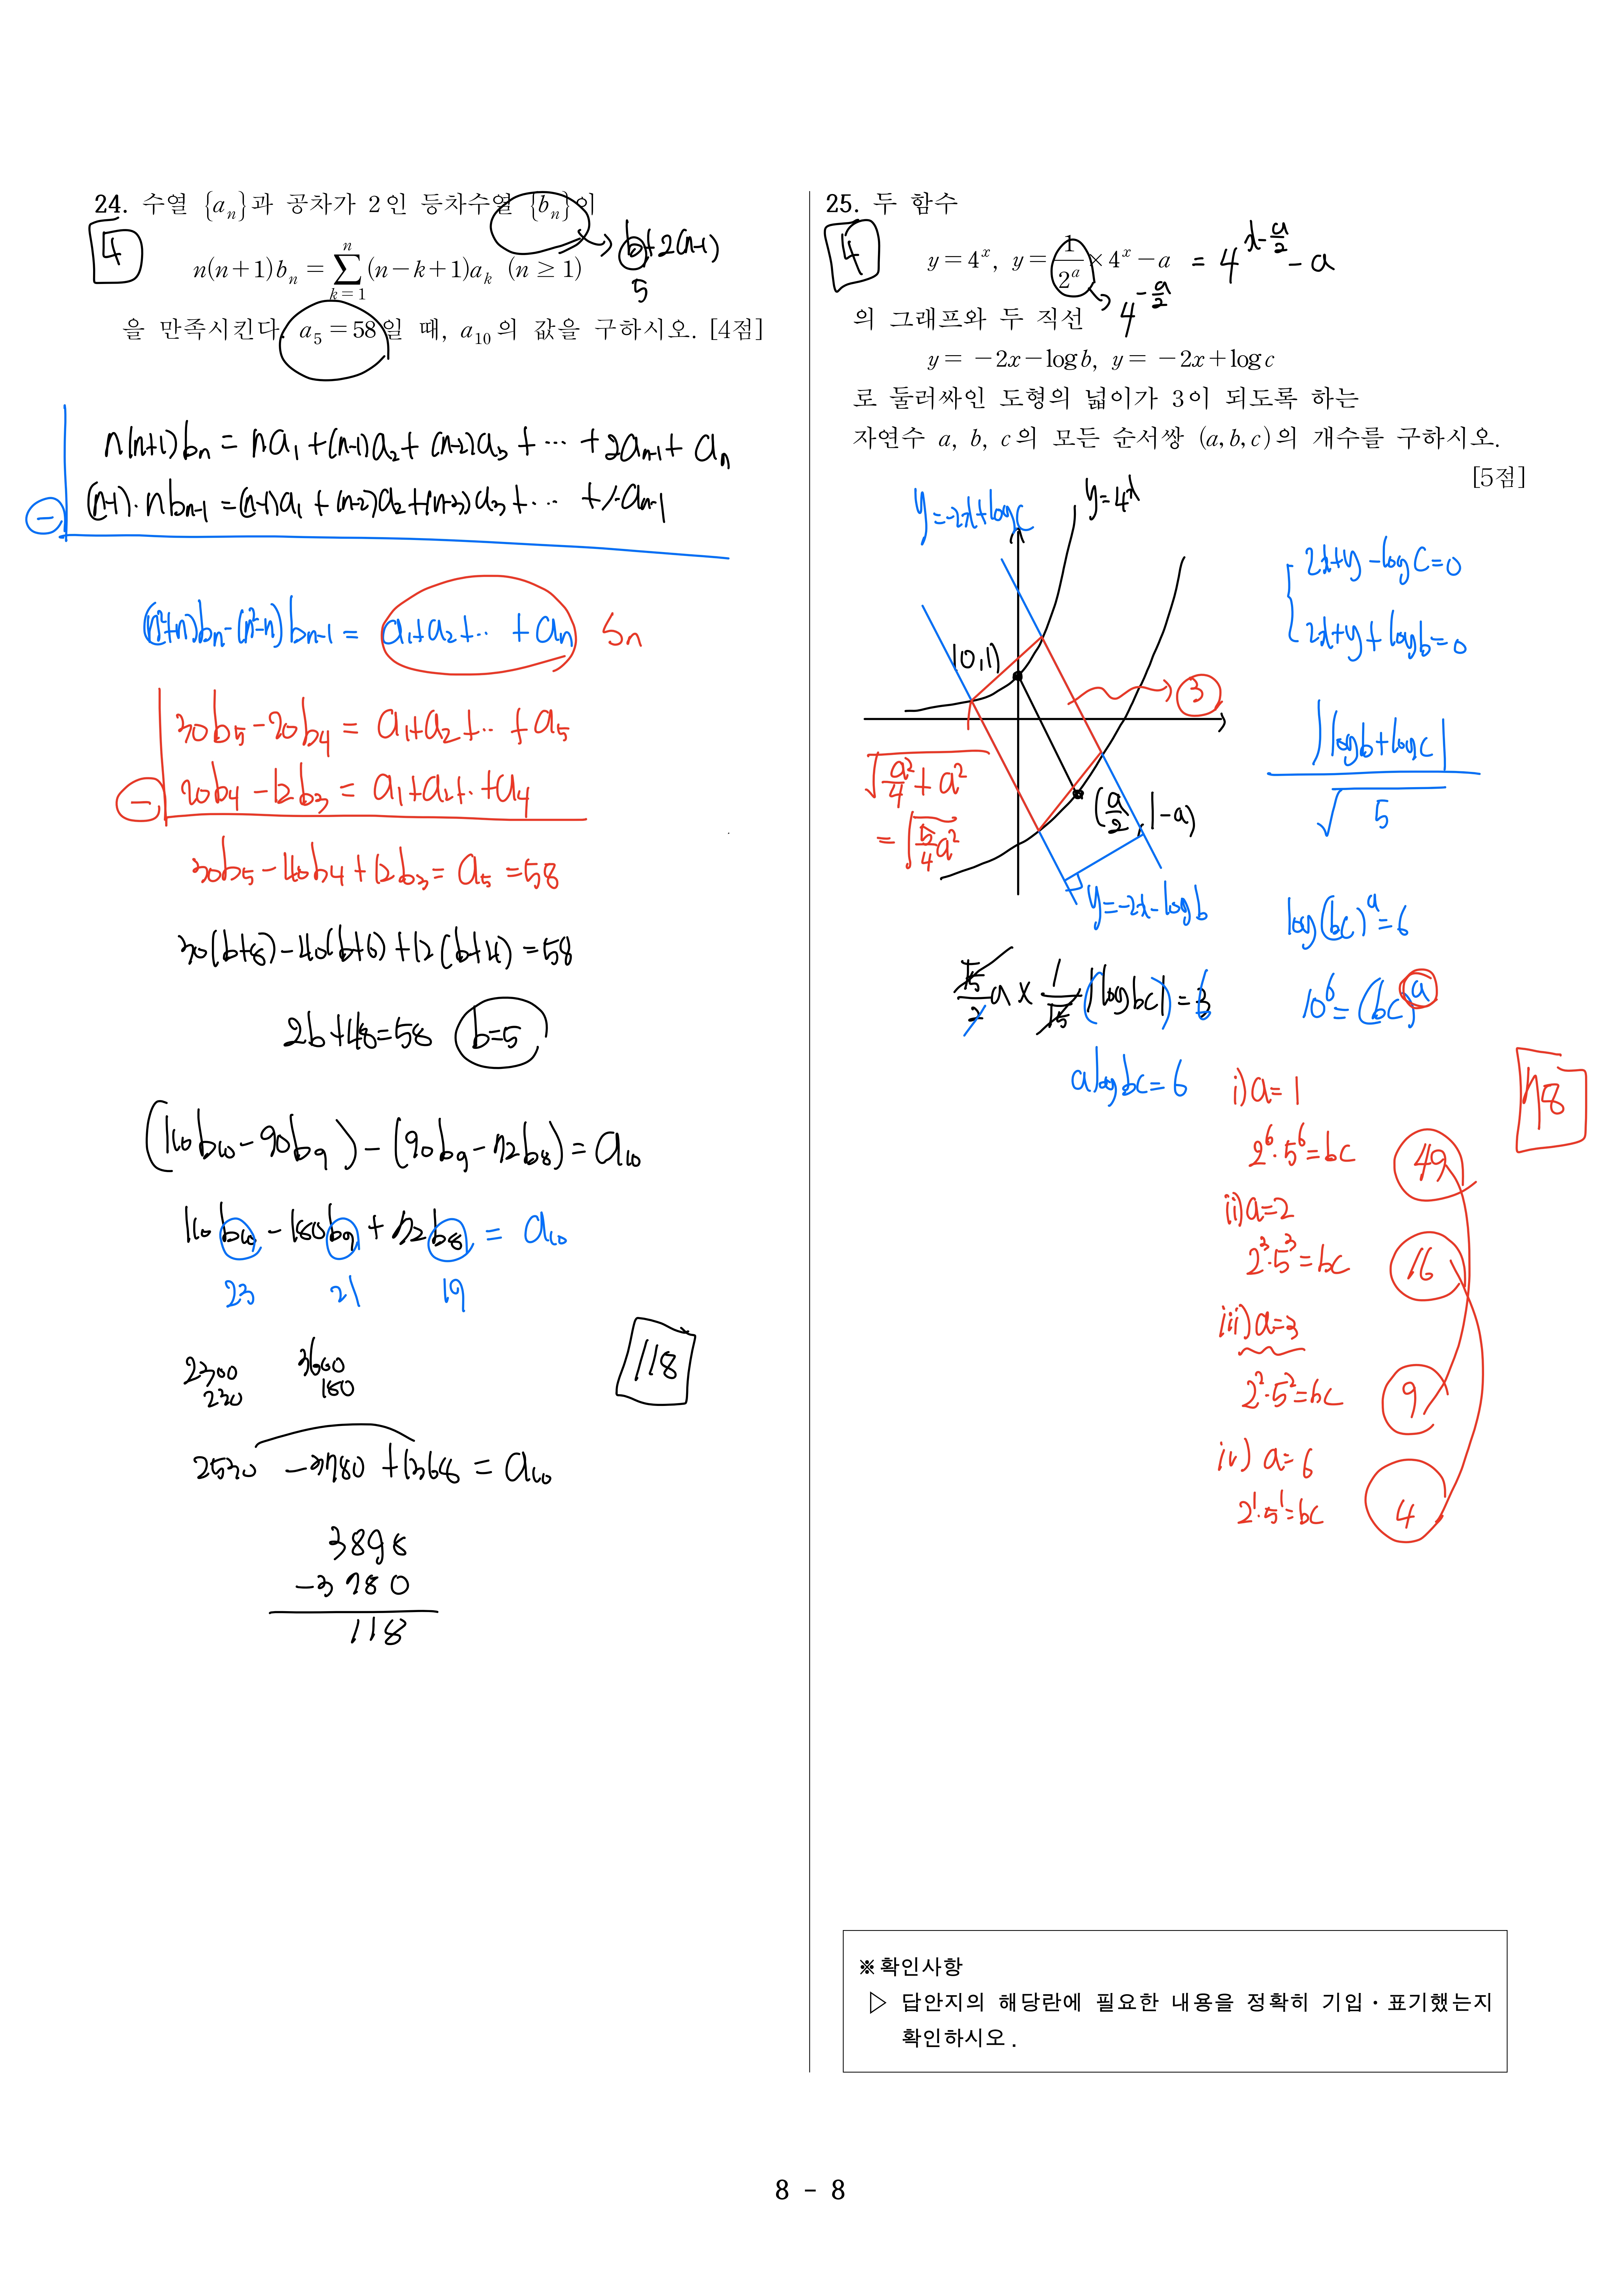 24. 수열 {aₙ}과 공차가 2인 등차수열 {bₙ}이
b+2(n-1)
5
4
n(n+1)bₙ = Σ_{k=1}^{n} (n-k+1)aₖ (n ≥ 1)
을 만족시킨다. a₅ = 58일 때, a₁₀의 값을 구하시오. [4점]
n(n+1)bₙ = na₁ + (n-1)a₂ + (n-2)a₃ + ⋯ + 2aₙ₋₁ + aₙ
(n-1)·nbₙ₋₁ = (n-1)a₁ + (n-2)a₂ + (n-3)a₃ + ⋯ + 1·aₙ₋₁
-
(n²+n)bₙ - (n²-n)bₙ₋₁ = a₁+a₂+⋯ +aₙ Sₙ
30b₅ - 20b₄ = a₁+a₂+⋯ +a₅
20b₄ - 12b₃ = a₁+a₂+⋯+a₄
-
30b₅ - 40b₄ + 12b₃ = a₅ = 58
30(b+8) - 40(b+6) + 12(b+4) = 58
2b+48=58 b=5
(110b₁₀ - 90b₉) - (90b₉ - 72b₈) = a₁₀
110b₁₀ - 180b₉ + 72b₈ = a₁₀
23 21 19
2300 3600
230 180
118
2530 - 3780 + 1368 = a₁₀
3898
-3780
118
25. 두 함수
4
y = 4ˣ, y = 1/2ᵃ × 4ˣ - a = 4^{x-a/2} - a
4^{-a/2}
의 그래프와 두 직선
y = -2x - log b, y = -2x + log c
로 둘러싸인 도형의 넓이가 3이 되도록 하는
자연수 a, b, c의 모든 순서쌍 (a, b, c)의 개수를 구하시오.
[5점]
y=-2x+logc
y=4ˣ
(0,1)
3
(a/2, 1-a)
y=-2x-logb
√(a²/4 + a²)
= √(5/4 a²)
2x+y-logc=0
2x+y+logb=0
|logb+logc| / √5
√5/2 a × 1/√5 (logbc) = 3
6
alogbc=6
log(bc)ᵃ=6
10⁶=(bc)ᵃ
i) a=1
2⁶·5⁶=bc 49
ii) a=2
2³·5³=bc 16
iii) a=3
2²·5²=bc 9
iv) a=6
2¹·5¹=bc 4
78
※ 확인사항
▷ 답안지의 해당란에 필요한 내용을 정확히 기입·표기했는지
확인하시오.
8 - 8